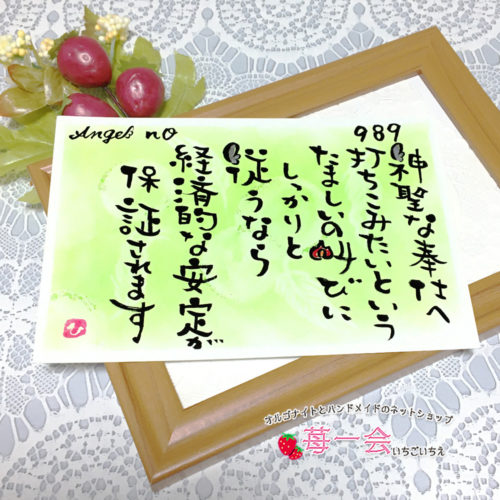 Angel's no
989
神聖な奉仕へ
打ちこみたいという
たましいの叫びに
しっかりと
従うなら
経済的な安定が
保証されます
ひ
オルゴナイトとハンドメイドのネットショップ
苺一会 いちごいちえ